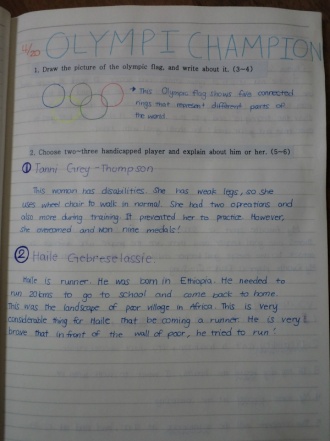 4/20 OLYMPI CHAMPION
1. Draw the picture of the olympic flag, and write about it. (3~4)
→ This Olympic flag shows five connected
rings that represent different parts of
the world.
2. Choose two~three handicapped player and explain about him or her. (5~6)
① Tanni Grey-Thompson
This woman has disabilities. She has weak legs, so she
uses wheel chair to walk in normal. She had two opreations and
also more during training. It prevented her to practice. However,
she overcomed and won nine medals!
② Haile Gebreselassie.
Haile is runner. He was born in Ethiopia. He needed to
run 20kms to go to school and come back to home.
This was the landscape of poor village in Africa. This is very
considerable thing for Haile, that be coming a runner. He is very
brave that in front of the wall of poor, he tried to run!